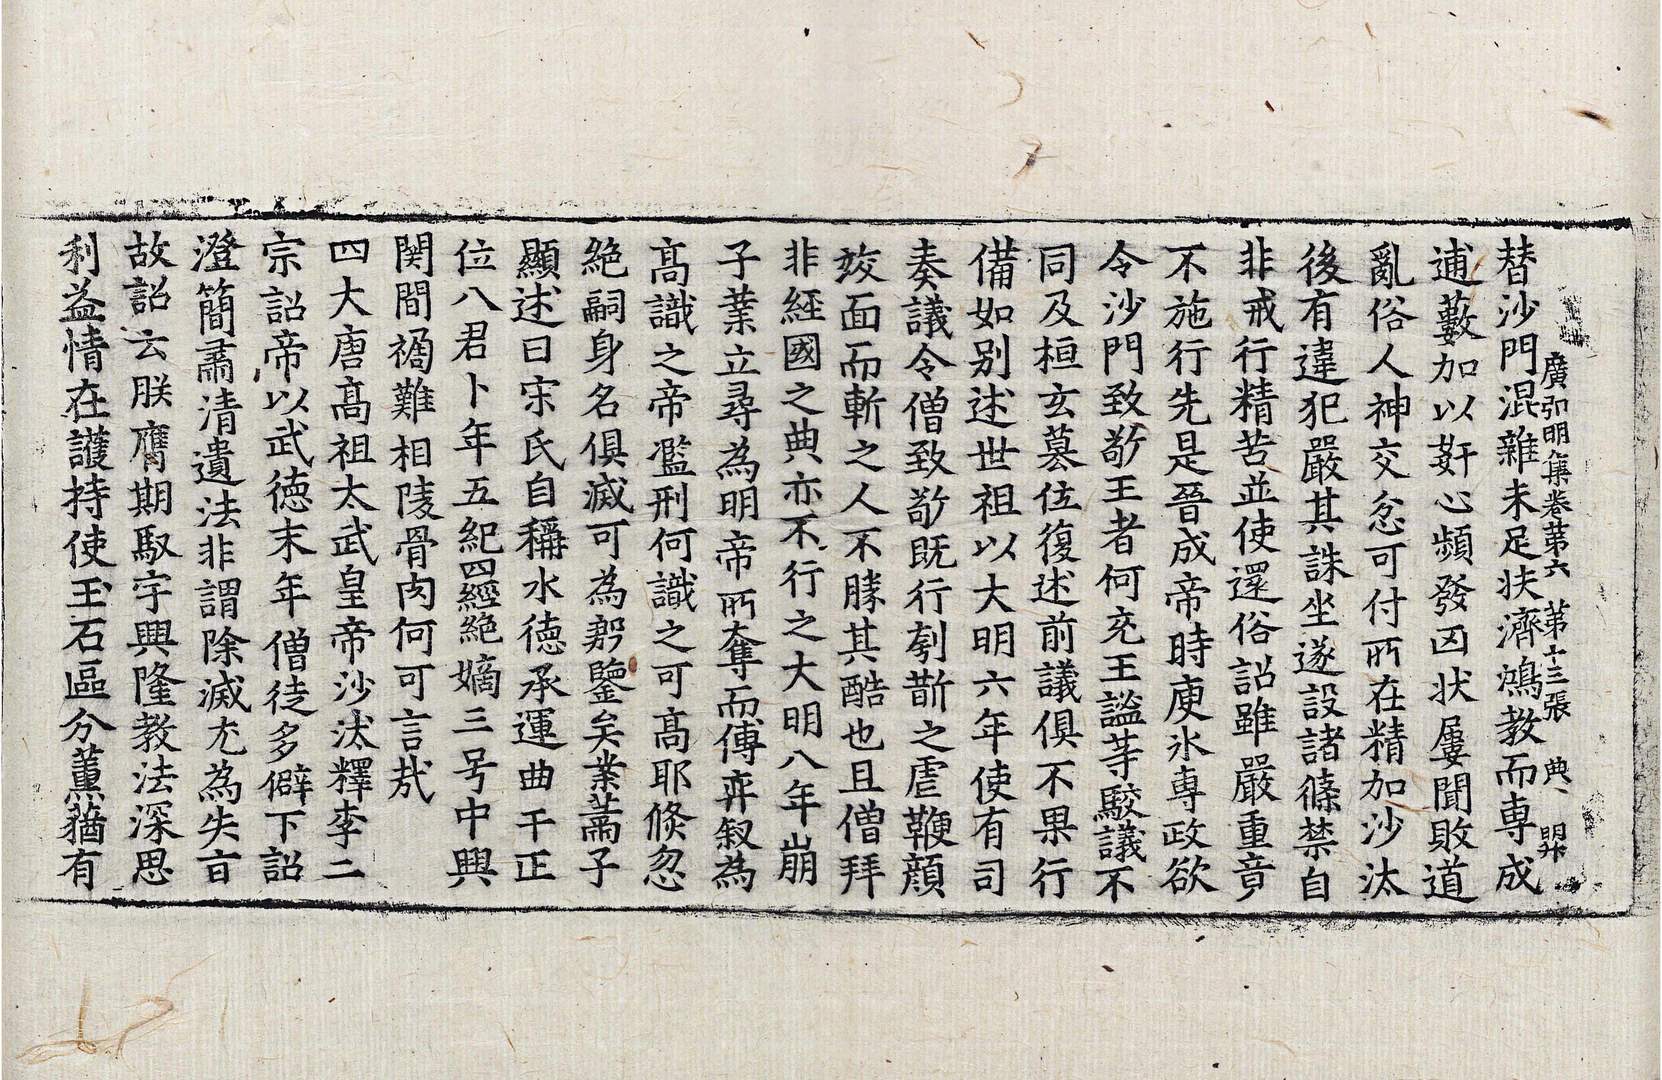 廣弘明集卷第六　第十三張　典
替沙門混雜未足扶濟鴻教而専成
逋藪加以姧心頻發凶状屢聞敗道
亂俗人神交忿可付所在精加沙汰
後有違犯嚴其誅坐遂設諸條禁自
非戒行精苦並使還俗詔雖嚴重竟
不施行先是晉成帝時庾氷専政欲
令沙門致敬王者何充王謐等駮議不
同及桓玄簒位復述前議俱不果行
備如别述世祖以大明六年使有司
奏議令僧致敬既行刳斮之虐鞭顔
竣面而斬之人不勝其酷也且僧拜
非經國之典亦不行之大明八年崩
子業立尋為明帝所奪而傅弈叙為
髙識之帝濫刑何識之可髙耶倏忽
絶嗣身名俱滅可為龜鑒矣業蕭子
顯述曰宋氏自稱水德承運曲干正
位八君卜年五紀四經絶嫡三号中興
関間禍難相陵骨肉何可言㢤
四大唐髙祖太武皇帝沙汰釋李二
宗詔帝以武德末年僧徒多僻下詔
澄簡肅清遺法非謂除滅尤為失旨
故詔云朕膺期馭宇興隆教法深思
利益情在護持使玉石區分薰蕕有